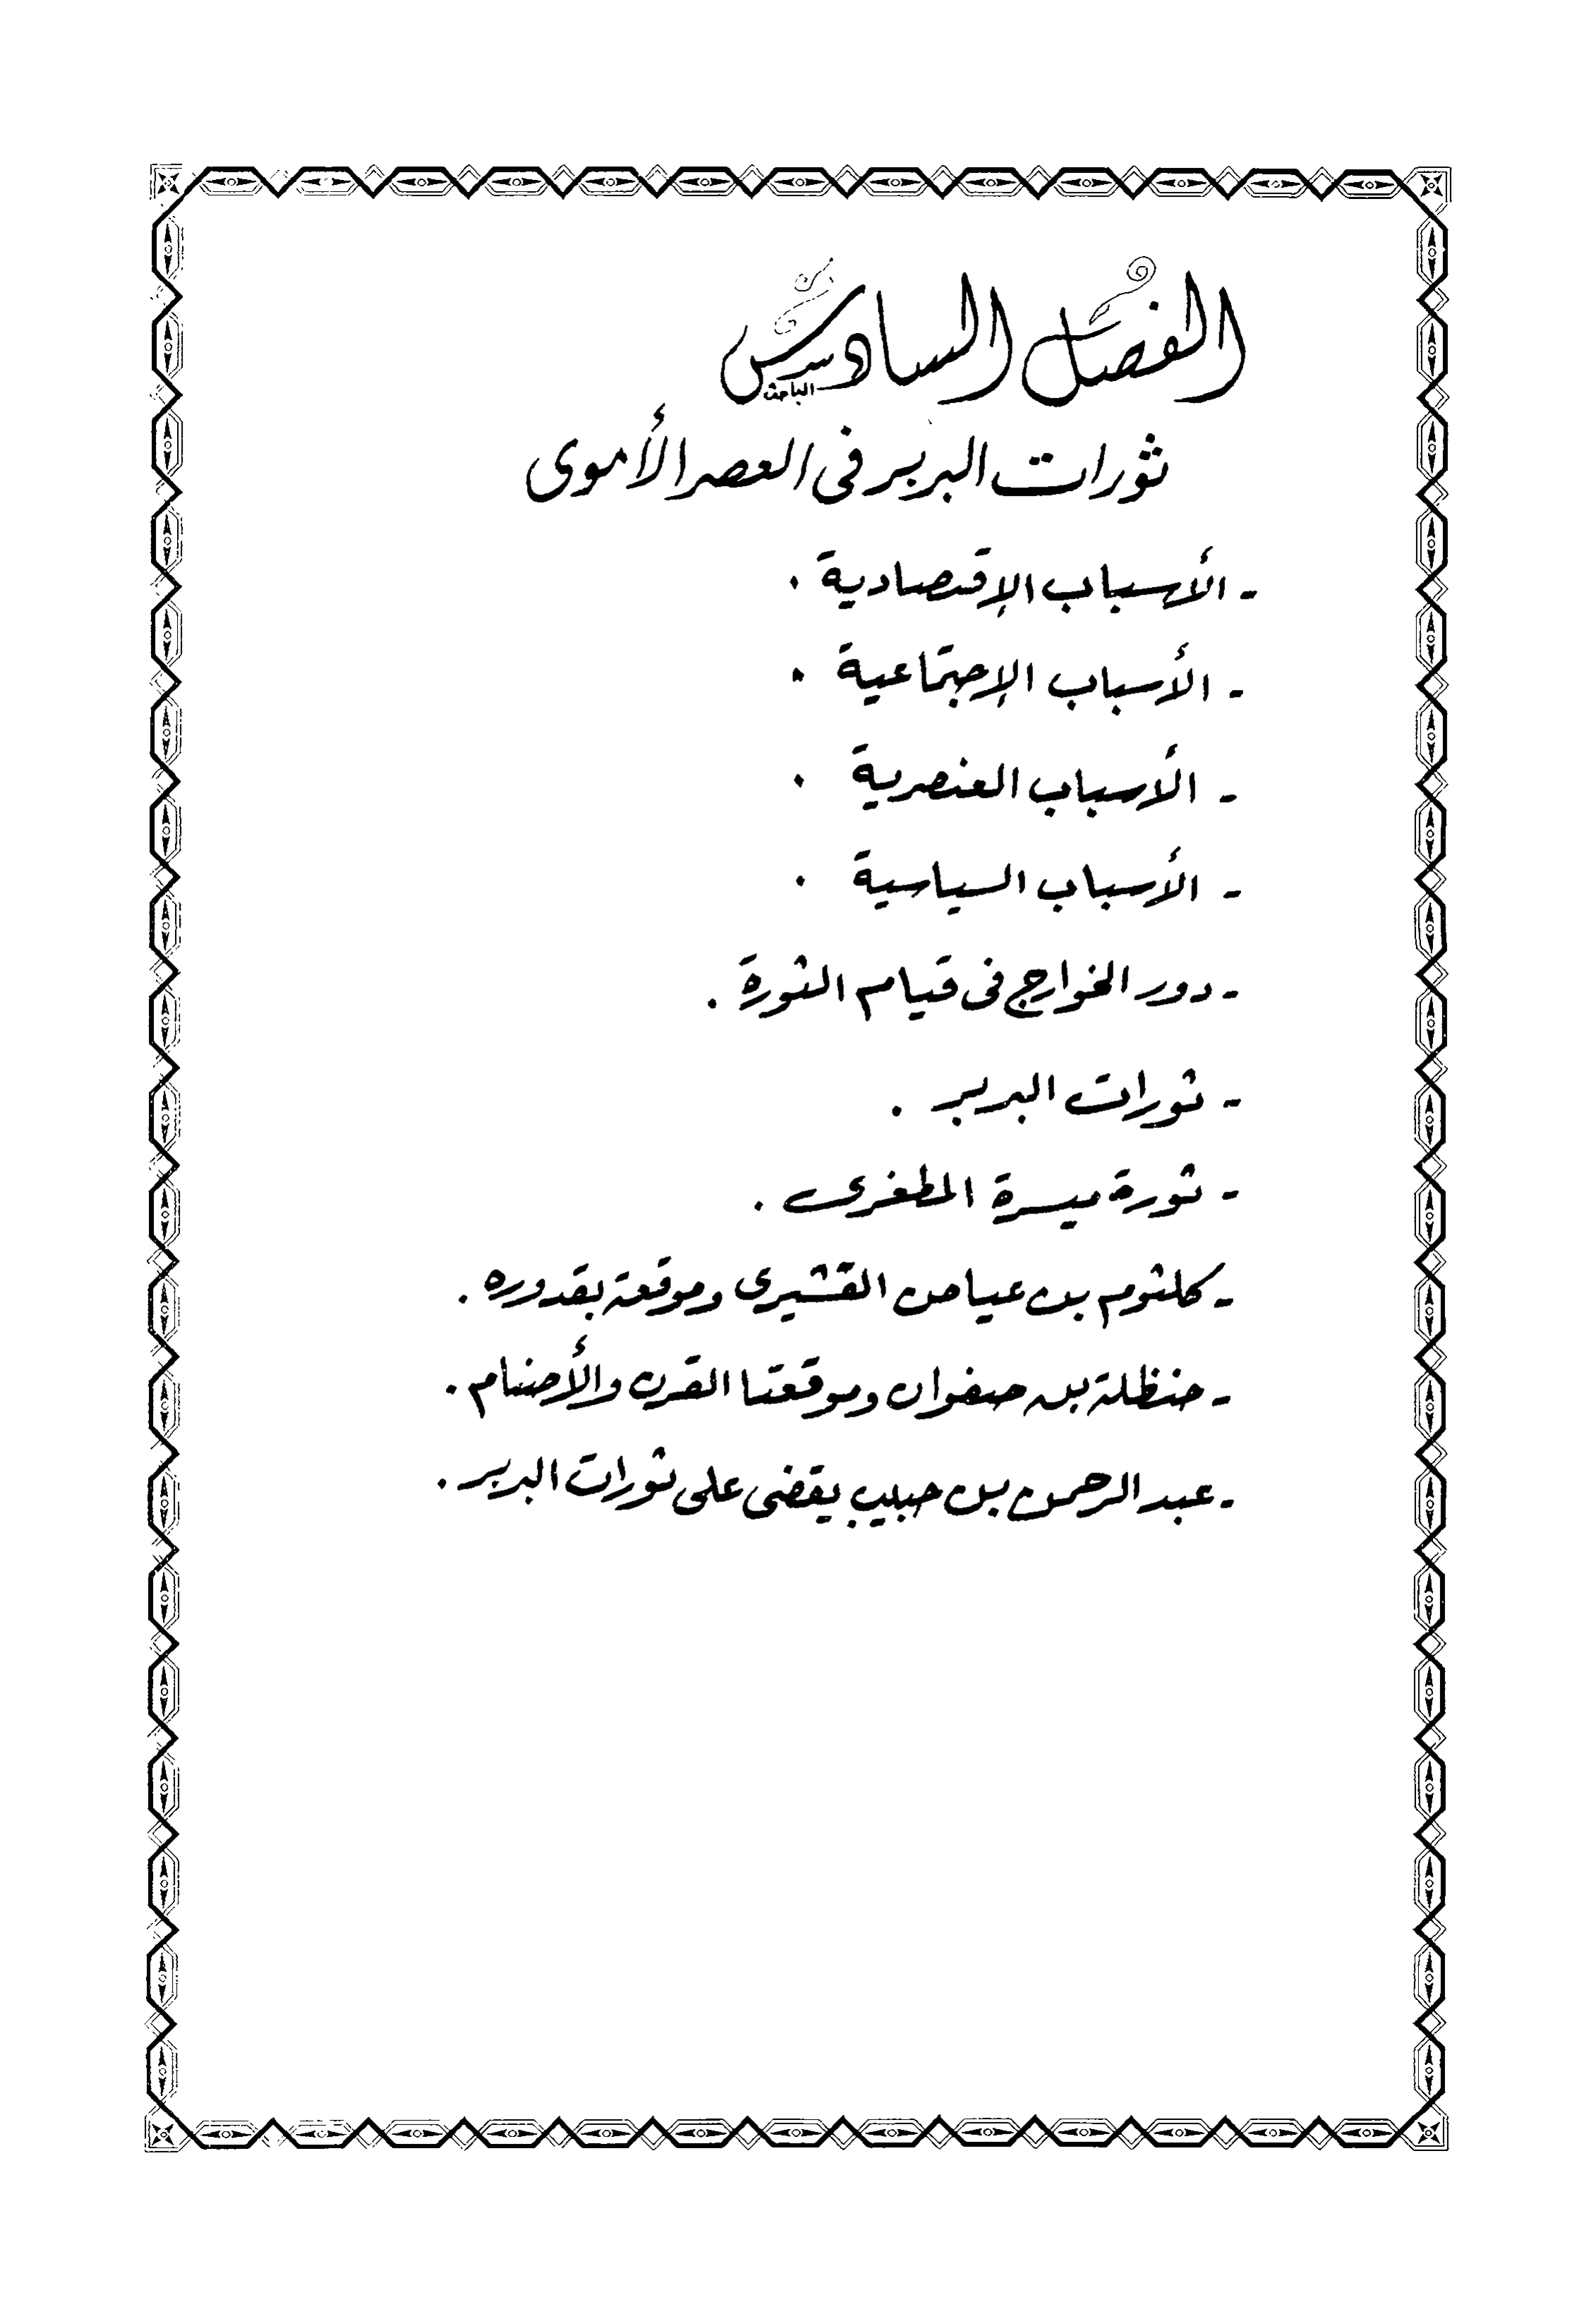 الفصل السادس
الباحث
ثورات البربر فى العصر الأموى
- الأسباب الإقتصادية .
- الأسباب الإجتماعية .
- الأسباب العنصرية .
- الأسباب السياسية .
- دور الخوارج فى قيام الثورة .
- ثورات البربر .
- ثورة ميسرة المطغرى .
- كلثوم بن عياض القشيرى وموقعة بقدوره .
- حنظلة بن صفوان وموقعتا القرن والأصنام .
- عبد الرحمن بن حبيب يقضى على ثورات البربر .